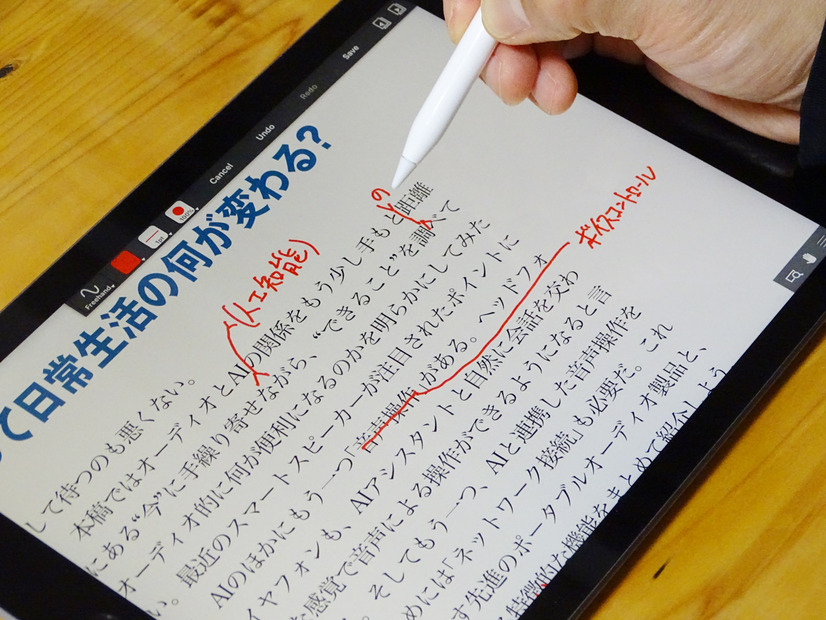 Save
Redo
Undo
Cancel
100%
1pt
Freehand
って日常生活の何が変わる?
して待つのも悪くない。
本稿ではオーディオとAIの関係をもう少し手もと距離
(人工知能)
の
にある“今”に手繰り寄せながら、“できること”を調べて
オーディオ的に何が便利になるのかを明らかにしてみた
い。最近のスマートスピーカーが注目されたポイントに
AIのほかにもう一つ「音声操作」がある。ヘッドフォ
ボイスコントロール
イヤフォンも、AIアシスタントと自然に会話を交わ
な感覚で音声による操作ができるようになると言
。そしてもう一つ、AIと連携した音声操作を
めには「ネットワーク接続」も必要だ。これ
す先進のポータブルオーディオ製品と、
特徴的な機能をまとめて紹介しよう